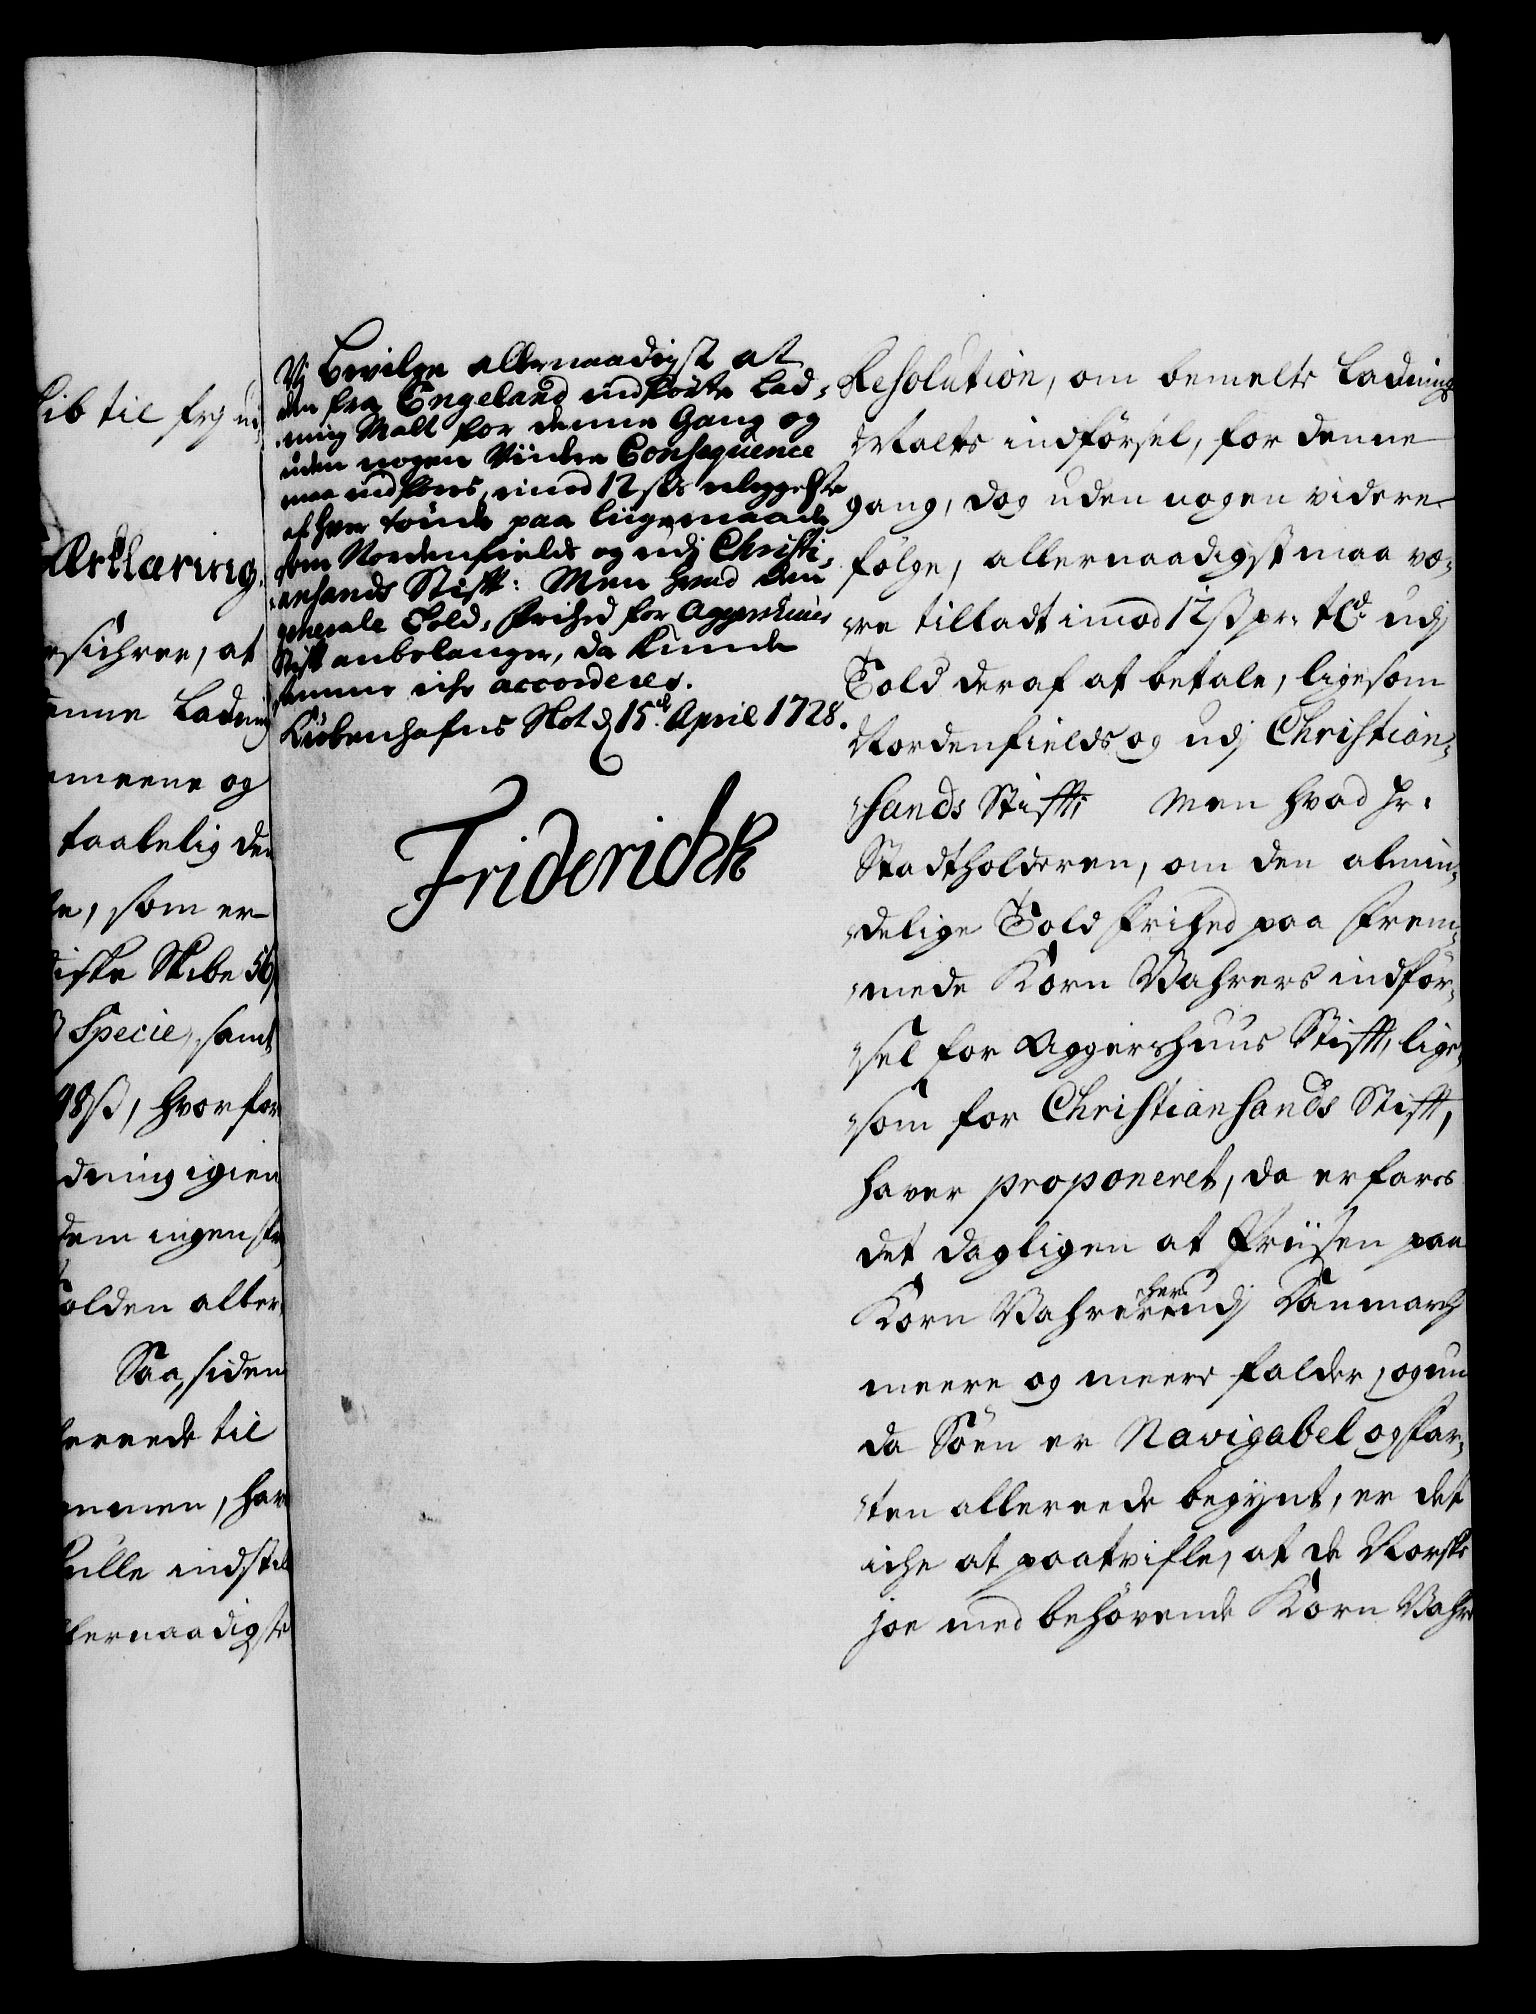 lib til frj ud
Erklæring.
at
Ladning
meene og
taalelig den
som er
Skibe 56
Specie, samt
48 ß, hvorfor
dning igien
dem ingen
olden aller
Saa, siden
til
ommen, har
kulle indstil
lernaadigste
Vj bevilge allernaadigst at
den fra Engeland indförte Lad,
,ning Malt for denne Gang og
uden nogen Viidre Consequence
maa indföres, imod 12 sk:s erleggelse
af hver tönde paa liigemaade
som Nordenfields og udj Christi,
,ansands Stift: Men hvad den
generale Told, friheed for Aggershuus
Stift anbelanger, da kunde
samme iche accorderes.
Kiöbenhafns Slot d 15de April 1728.
Friderich R
Resolution, om bemelte Ladning
Malts indförsel, for denne
gang, dog uden nogen videre
følge, allernaadigst maa væ,
,re tilladt imod 12 ß pr: tde udj
Told deraf at betale, ligesom
Nordenfields og udj Christian,
,sands Stift; Men hvad Hr:
Stadtholderen, om den almin,
,delige Told frihed paa frem,
,mede Korn Vahrers indför,
,sel for Aggershuus Stift, lige,
,som for Christiansands Stift,
haver proponeret, da erfares
det dagligen at Priisen paa
Korn Vahrerne her udj Danmarch
meere og meere falder, og nu
da Söen er Navigabel og far,
,ten allereede begynt, er det
iche at paatvifle, at de Norske
joe med behövende Korn Vahre